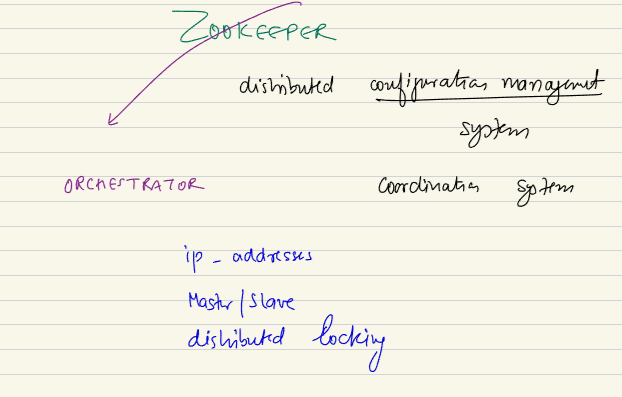 ZOOKEEPER
distributed configuration management
system
ORCHESTRATOR coordination system
ip - addresses
Master/Slave
distributed locking